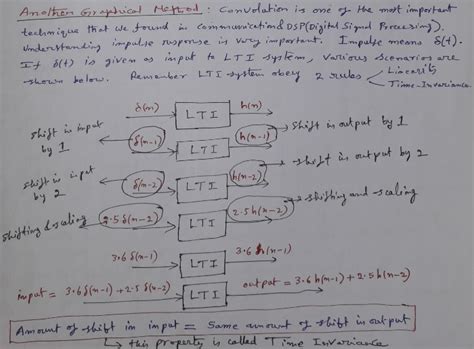 Another Graphical Method : Convolution is one of the most important
technique that we found in Communication & DSP (Digital Signal Processing).
Understanding impulse response is very important. Impulse means δ(t).
If δ(t) is given as input to LTI system, various scenarios are
shown below. Remember LTI system obey 2 rules
Linearity
Time-Invariance.
δ(n) LTI h(n)
shift in input by 1
δ(n-1) LTI h(n-1)
Shift in output by 1
shift in input by 2
δ(n-2) LTI h(n-2)
shift in output by 2
shifting & scaling
2.5 δ(n-2) LTI 2.5 h(n-2)
shifting and scaling
3.6 δ(n-1) LTI 3.6 h(n-1)
input = 3.6 δ(n-1) + 2.5 δ(n-2) LTI output = 3.6 h(n-1) + 2.5 h(n-2)
Amount of shift in input = Same amount of shift in output
this property is called Time Invariance